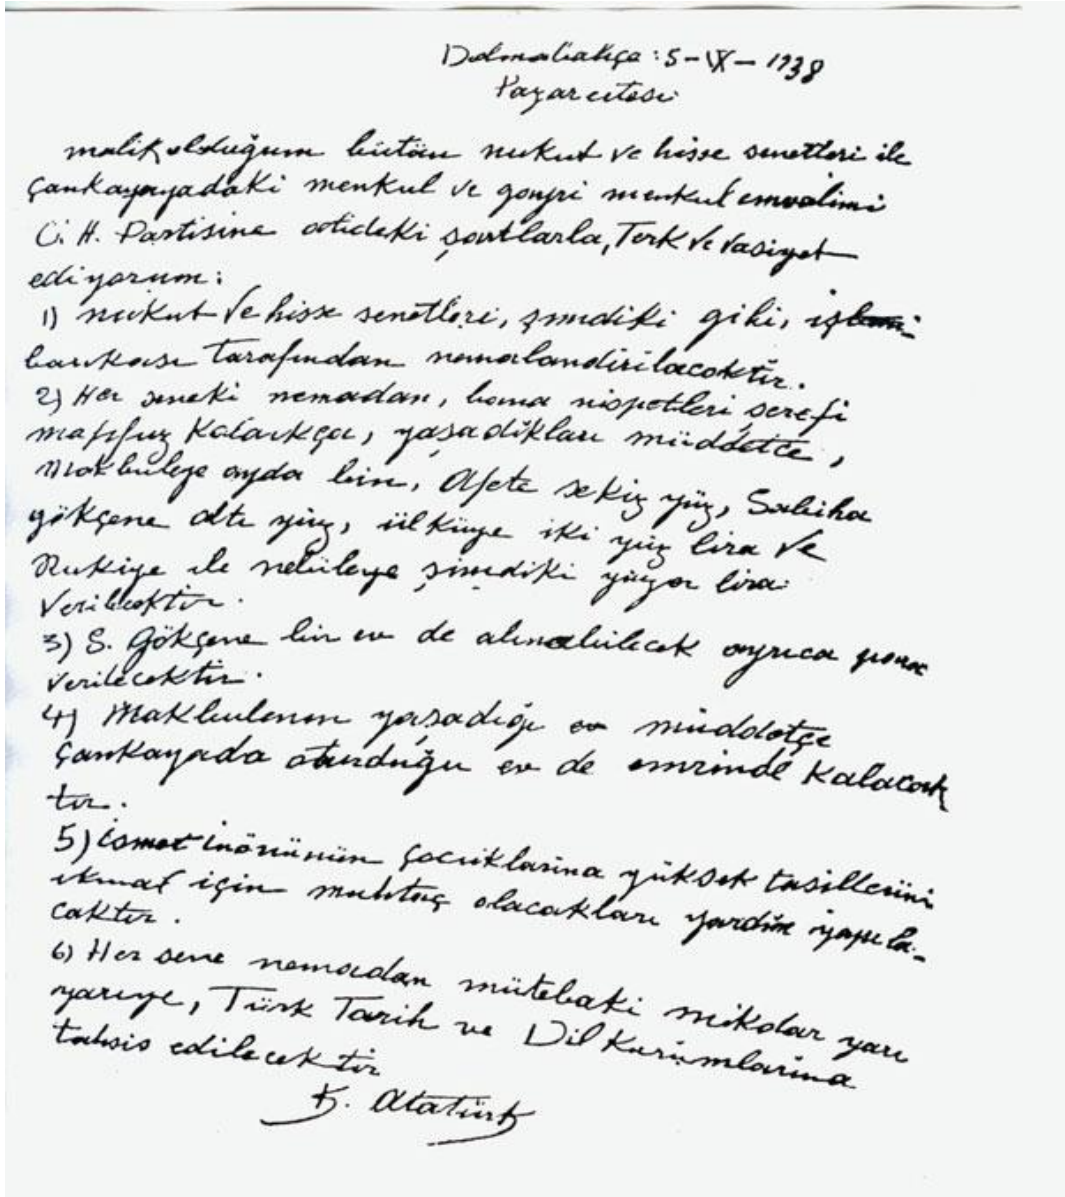 Dolmabahçe : 5 - IX - 1938
Pazarertesi
malik olduğum bütün nukut ve hisse senetleri ile
Çankayayadaki menkul ve gayri menkul emvalimi
C. H. Partisine atideki şartlarla, Terk ve vasiyet
ediyorum :
1) nukut ve hisse senetleri, şimdiki gibi, iş
bankası tarafından nemalandırılacaktır.
2) Her seneki nemadan, bana nispetleri şerefi
mahfuz kaldıkça, yaşadıkları müddetce,
Makbuleye ayda bin, Afete sekiz yüz, Sabiha
gökçene altı yüz, ülküye iki yüz lira ve
Rukiye ile nebileye şimdiki yüzer lira
verilecektir.
3) S. Gökçene bir ev de alınabilecek ayrıca para
verilecektir.
4) Makbulenin yaşadığı müddetçe
Çankayada oturduğu ev de emrinde kalacak
tır.
5) ismet inönünün çocuklarına yüksek tasillerini
ikmal için muhtaç olacakları yardım yapıla-
caktır.
6) Her sene nemadan mütebaki miktar yarı
yarıya, Türk Tarih ve Dil Kurumlarına
tahsis edilecektir
K. Atatürk